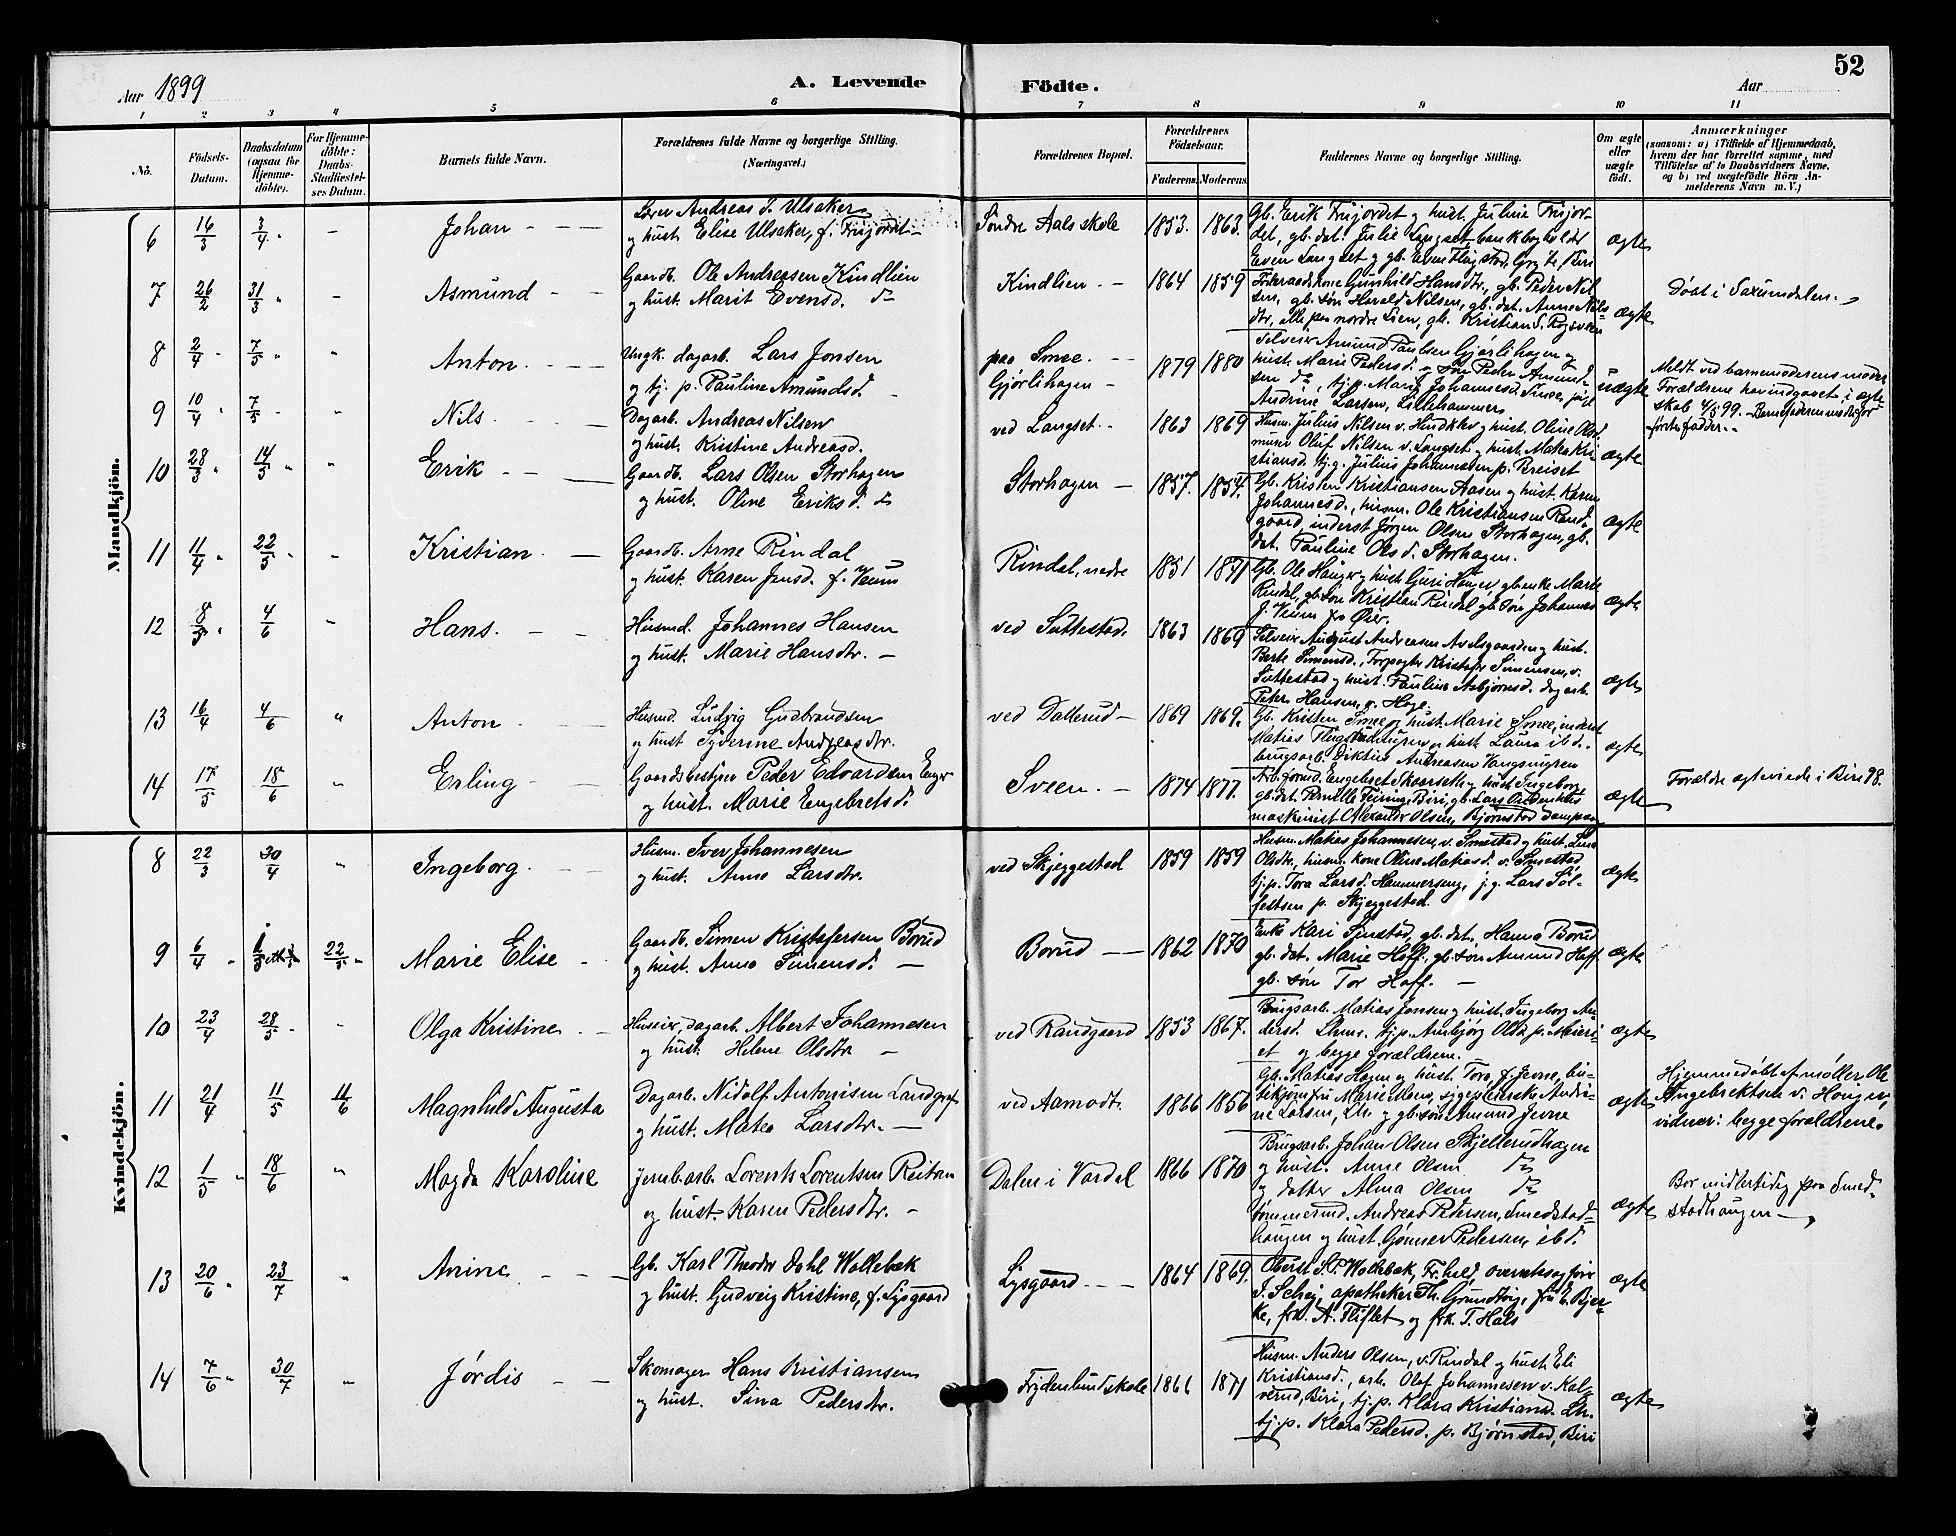 52
Aar 1899
A. Levende Födte.
Aar
1 2 3 4 5 6 7 8 9 10 11
No.
Födsels-Datum.
Daabsdatum (ogsaa for Hjemme-döbte).
For Hjemme-döbte: Daabs-Stadfæstel-ses Datum.
Barnets fulde Navn.
Forældrenes fulde Navne og borgerlige Stilling. (Næringsvei.)
Forældrenes Bopæl.
Forældrenes Födselsaar.
Faderens. Moderens.
Faddernes Navne og borgerlige Stilling.
Om ægte eller uægte født.
Anmærkninger
(saasom: a) i Tilfælde af Hjemmedaab, hvem der har forrettet samme, med Tilføielse af to Daabsvidners Navne, og b) ved uægtefödte Börn Anmelderens Navn m. V.)
Mandkjön.
6 16/3 3/4 - Johan - - -
Lærer Andreas J. Ulsaker
og hust. Elise Ulsaker, f. Frujordet
Söndre Aals skole 1853. 1863.
Gb. Erik Frujordet og hust. Juline Frujor-
det, gb. dat. Julie Langset, bankbogholder
Even Langset og gb.
ægte
7 26/2 31/3 - Asmund - -
Gaardb. Ole Andreasen Kindlien
og hust. Marit Evensd. do
Kindlien - - 1864 1859
Föderaadskone Gunhild Hansdtr., gb. Peder Nil-
sen, gb. søn Herald Nilsen, gb. dat. Anne Nils-
dtr, alle paa nordre Lien, gb. Kristian
ægte
Døbt i Saxumdalen.
8 2/4 7/5 " Anton. - - -
Ungk. dagarb. Lars Jonsen
og tj. p. Pauline Amundsd.
paa Smee.
Gjørlihagen - 1879 1880
Selveier Amund Paulsen Gjørlihagen og
hust. Marie Pedersd. og søn Peder Amund-
sen do, tj. p. Marit Johannesd. Smee, pige
Andrine Larsen, Lillehammer
uægte
Meldt ved barnemoderens moder
Forældrene har indgaaet i ægte-
skab 4/5 99. Barnefaderen med
første fadder.
9 10/4 7/5 " Nils. - -
Dagarb. Andreas Nilsen
og hust. Kristine Andreasd.
ved Langset. 1863 1869
Husm. Julius Nilsen v. og hust. Oline Ols
Oluf Nilsen v. Langset og hust. Mathea Kri-
stiansd. tj. g. Julius Johannesen p. Breiset
ægte
10 28/3 14/5 " Erik - -
Gaardb. Lars Olsen Storhagen
og hust. Oline Eriksd. do
Storhagen - 1857. 1854.
Gb. Kristen Kristiansen Aasen og hust. Karen
Johannesd., husm. Ole Kristiansen Rand-
gaard, inderst Jørgen Olsen Storhagen, gb.
dat. Pauline Olsd. Storhagen.
ægte
11 11/4 22/5 " Kristian. -
Gaardb. Arne Rindal
og hust. Karen Jensd. f. Veum
Rindal, nedre 1851 1871
Gb. Ole Houger og hust. Guri Houger, gb. enke Marie
Rindal, gb. søn Kristian Rindal gb. søn Johannes
J. Veum fra Øier.
ægte
12 8/3 4/6 " Hans. - -
Husmd. Johannes Hansen
og hust. Marie Hansdtr. -
ved Suttestad. 1863 1869
Selveier August Andreasen Avelsgaarden og hust.
Berte Simensd., Forpagter Kristofer Simensen, v.
Suttestad og hust. Pauline Asbjørnsd. dagarb.
Peter Hansen, v. Hage
ægte
13 16/4 4/6 " Anton - -
Husmd. Ludvig Gudbrandsen
og hust. Syverine Andreasdtr.
ved Dallerud - 1869 1869.
Gb. Kristen Smee og hust. Marie Smee, inderst
Matias og hust. Laura ibd.
brugsarb. Andreasen
ægte
14 17/5 18/6 " Erling -
Gaardsbestyrer Peder Edvardsen Enger
og hust. Marie Engebretsd.
Sveen. - 1874 1877.
Engebret Skaarseth og hust. Ingeborg
gb. dat. Pernille Feiring, Biri, gb. Lars
maskinist Alexander Olsen, Bjørnstad
ægte
Forældre ægteviede i Biri 98.
Kvindekjön.
8 22/3 30/4 " Ingeborg. - -
Husm. Iver Johannesen
og hust. Anne Larsdtr.
ved Skjeggestad 1859 1859
Husm. Matias Johannesen, v. Smestad og hust. Lina
Olsdtr., husm. kone Oline Matiasd. v. Smestad
tj. p. Tora Larsd. Hammerseng, j. g. Lars Sol-
festsen p. Skjeggestad.
ægte
9 6/4 22/5 Marie Elise -
Gaardb. Simen Kristofersen Borud
og hust. Anne Simensd. -
Borud - - 1862 1870
Enke Kari Sjustad, gb. dat. Hanna Borud
gb. dat. Marie Hoff. gb. søn Amund Hoff
gb. søn Tor Hoff. -
ægte
10 23/4 28/5 " Olga Kristine - -
Huseier, dagarb. Albert Johannesen
og hust. Helene Olsdtr -
ved Randgaard 1853 1867.
Brugsarb. Matias Jonsen og hust. Ingeborg An-
dersd. tj. p. Anbjørg Olsd. p. Meieri-
et og begge forældrene.
ægte
11 21/4 11/5 11/6 Magnhild Augusta
Dagarb. Nidolf Antonisen Landgraf
og hust. Matea Larsdtr. -
ved Aamodt. 1866 1856
Gb. Matias Hagen og hust. Tora, f. Jevne, bu-
tikjomfru Marie Moen, sygepleierske Andri-
ne Larsen, Lhr. og gb. søn Amund Jevne
ægte
Hjemmedøbt af møller Ole
Engebrektsen v. Houger,
vidner: begge forældrene.
12 1/5 18/6 " Magda Karoline
Jernb. arb. Lorents Lorentsen Reitan
og hust. Karen Pedersdtr. -
Dalen i Vardal 1866 1870
Brugsarb. Johan Olsen Skjellerudhagen
og hust. Anne Olsen do
og datter Alma Olsen do
tømmermd. Andreas Pedersen, Smedstad-
haugen og hust. Gønner Pedersen, ibd.
ægte
Bor midlertidig paa Smed-
stadhaugen -
13 20/6 23/7 " Anine - - -
Gb. Karl Theodor Dahl Wollebæk
og hust. Gudveig Kristine, f. Lysgaard
Lysgaard - - 1864 1869.
Oberst S. P. Wollebæk, Fr. held, oversagfører
J. Schei, apotheker Th. Grundtvig, fru E. Bjer-
ke, frk. A. Fliflet og frk. T. Hals
ægte
14 7/6 30/7 " Jørdis - -
Skomager Hans Kristiansen
og hust. Sina Pedersdtr.
Frydenlund skole 1866 1871
Husm. Anders Olsen, v. Rindal og hust. Eli
Kristiansd., arb. Olaf Johannesen v. Kal-
verud, Biri, tj. p. Klara Kristiansd. Lhr.
tj. p. Klara Pedersd. p. Bjørnstad, Biri
ægte